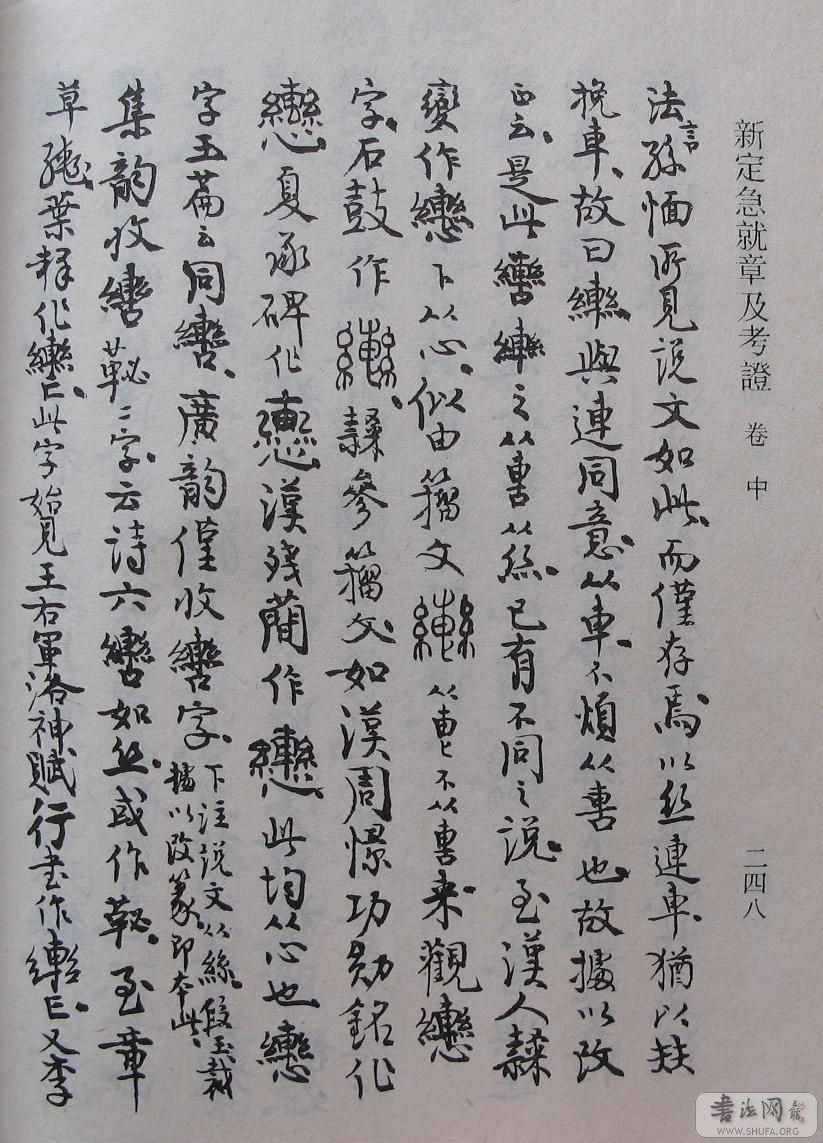 新定急就章及考證 卷中 二四八
法言孫愐所見説文如此而僅存焉以絲連車猶以扶
挽車故曰轡與連同意从車不煩从軎也故據以改
正云是此轡之从軎从絲已有不同之説至漢人隸
變作下从心似由籀文从叀不从軎来觀
字石鼓作隸參籀文如漢周憬功勳銘作
夏承碑作漢殘蕑作此均从心也
字玉篇云同轡廣韵僅收轡字下注説文从絲段玉裁
據以改篆即本此
集韵收轡䪐二字云詩六轡如丝或作䪐至章
草葉釋作此字始見王右軍洛神賦行書作又李
書法网 WWW.SHUFA.ORG